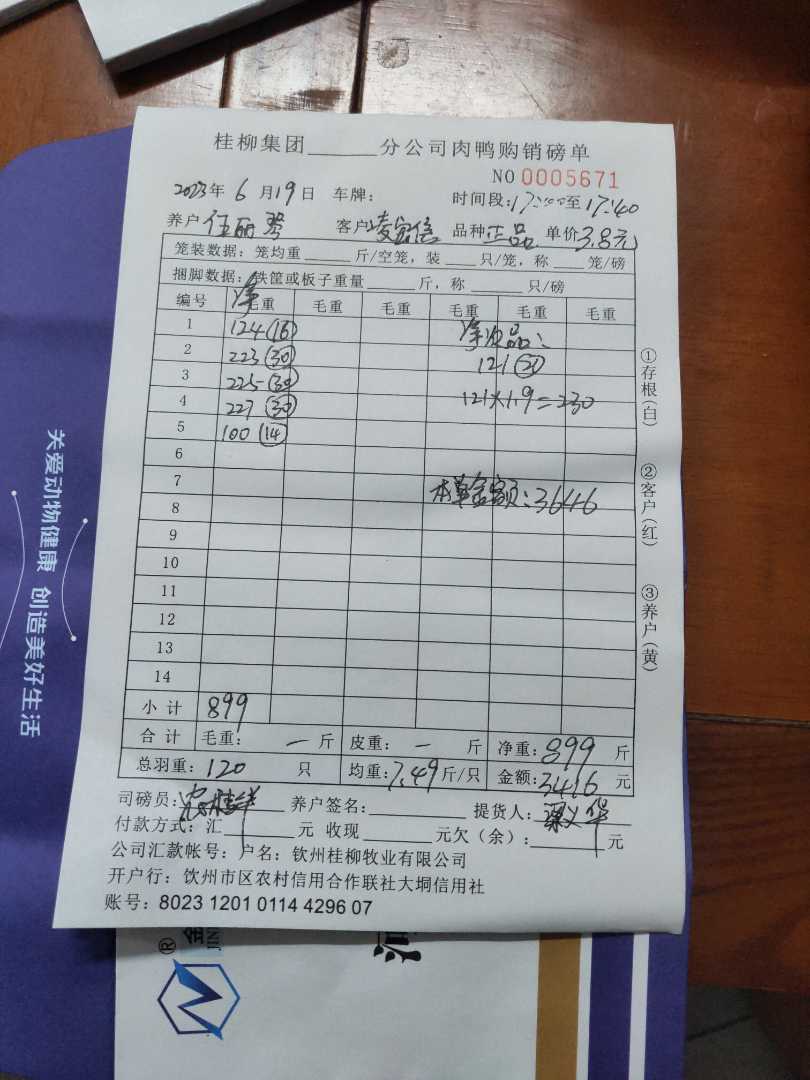 桂柳集团______分公司肉鸭购销磅单
NO 0005671
2023年 6 月19日 车牌： 时间段：17:00至17:40
养户 任丽 客户 凌 信 品种 正品 单价 3.8元
笼装数据：笼均重____斤/空笼，装____只/笼，称____笼/磅
捆脚数据：铁筐或板子重量____斤，称____只/磅
编号 净毛重 毛重 毛重 毛重 毛重 毛重
1 124 (16) 净次品：
2 223 (30) 121 (21)
3 225 (30)
4 227 (30) 121×1.9=230
5 100 (14)
6
7 本单金额：3646
8
9
10
11
12
13
14
小计 899
合计 毛重： — 斤 皮重： — 斤 净重：899 斤
总羽重：120 只 均重：7.49斤/只 金额：3416 元
司磅员： 养户签名：________ 提货人：梁义华
付款方式：汇______元 收现______元欠（余）：______元
公司汇款帐号：户名：钦州桂柳牧业有限公司
开户行：钦州市区农村信用合作联社大垌信用社
账号：8023 1201 0114 4296 07
①存根（白）
②客户（红）
③养户（黄）
关爱动物健康 创造美好生活
®